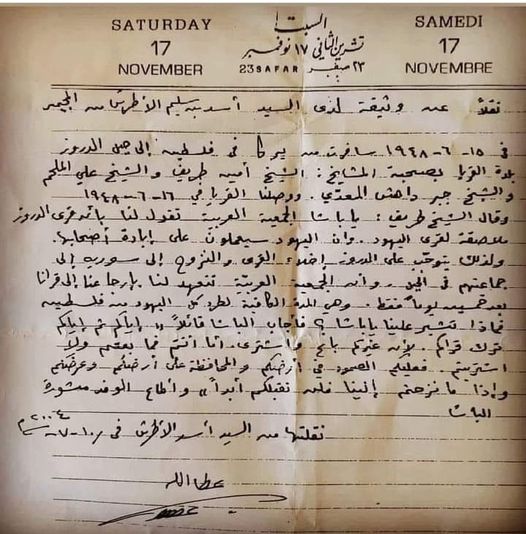 SATURDAY
17
NOVEMBER
السبت
تشرين الثاني ١٧ نوفمبر
23 SAFAR صفر ٢٣
SAMEDI
17
NOVEMBRE
نقلاً عن وثيقة لدى السيد أسد سليم الأطرش من
في ١٥-٦-١٩٤٨ سافرت من يركا في فلسطين إلى جبل الدروز
بلدة القريا بصحبة المشايخ: الشيخ أمين طريف والشيخ علي الملحم
والشيخ جبر داهش المعدي. ووصلنا القريا في ١٦-٦-١٩٤٨
وقال الشيخ طريف: يا باشا الجمعية العربية تقول لنا بأن قرى الدروز
ملاصقة لقرى اليهود. وأن اليهود سيعملون على إبادة أصحابها.
ولذلك يتوجب على الدروز إخلاء القرى والنزوح إلى سوريه إلى
جماعتهم في الجبل. وأن الجمعية العربية تتعهد لنا بإرجاعنا إلى قرانا
بعد خمسين يوماً فقط. وهي المدة الكافية لطرد كل اليهود من فلسطين
فماذا تشير علينا يا باشا؟ فأجاب الباشا قائلاً «إياكم ثم إياكم
ترك قراكم. لأن غيركم باع واشترى. أما أنتم فما بعتم ولا
اشتريتم. فعليكم الصمود في أرضكم والمحافظة على أرضكم وعرضكم
وإذا ما نزحتم إلينا فلن نقبلكم أبداً» وأطاع الوفد مشورة
الباشا
نقلتها من السيد أسد الأطرش في ٢٠٠٤
عطاالله